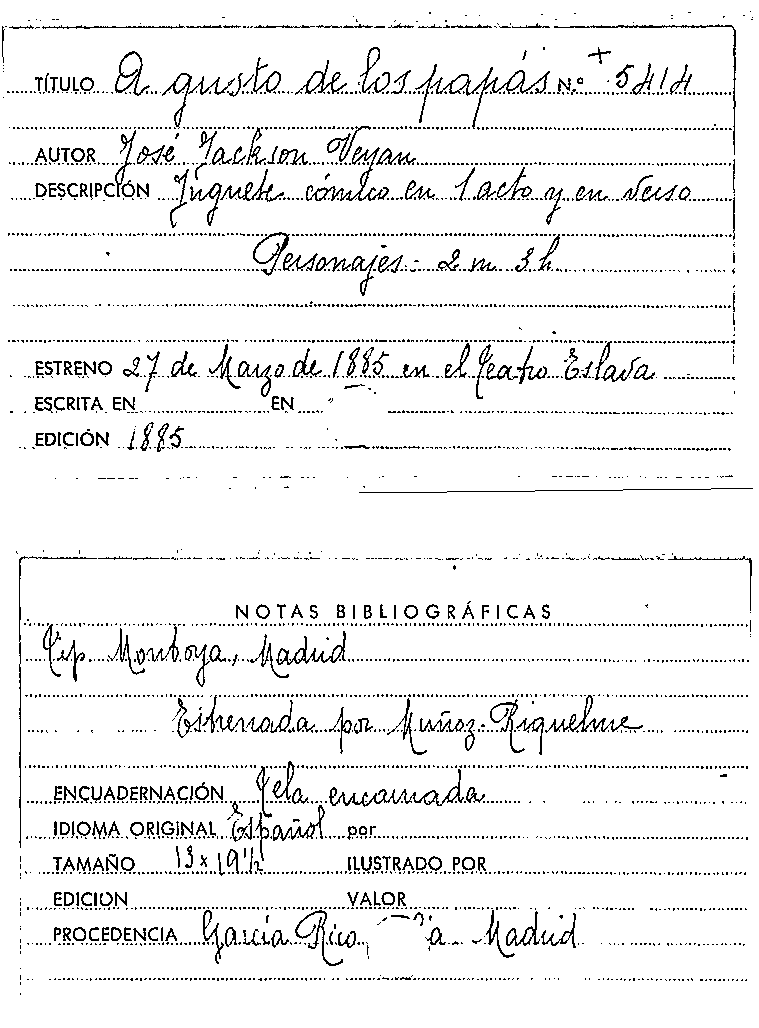 TÍTULO A gusto de los papás N.º + 5414
AUTOR José Jackson Veyan
DESCRIPCIÓN Juguete cómico en 1 acto y en verso
Personajes - 2 m 3 h
ESTRENO 27 de Marzo de 1885 en el Teatro Eslava
ESCRITA EN EN
EDICIÓN 1885
NOTAS BIBLIOGRÁFICAS
Tip. Montoya, Madrid
Estrenada por Muñoz - Riquelme
ENCUADERNACIÓN Tela encarnada
IDIOMA ORIGINAL Español por
TAMAÑO 13 x 19 1/2 ILUSTRADO POR
EDICION VALOR
PROCEDENCIA García Rico, Madrid